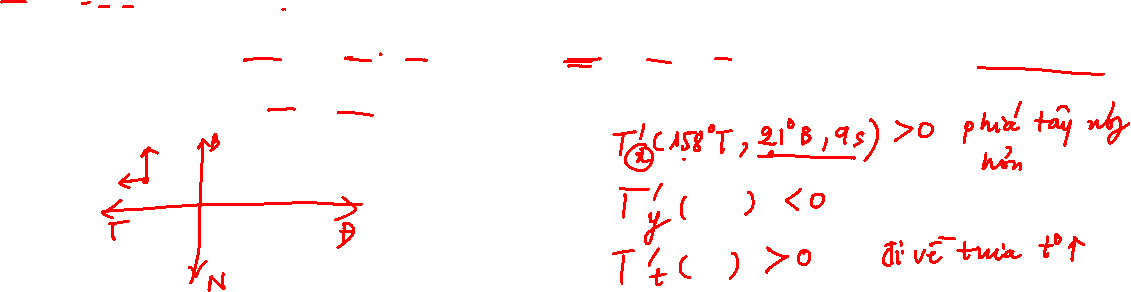 T'x(158°T, 21°B, 9s) > 0 phía tây nóng
hơn
T'y( ) < 0
T't( ) > 0 đi về trưa t° ↑
B
T Đ
N